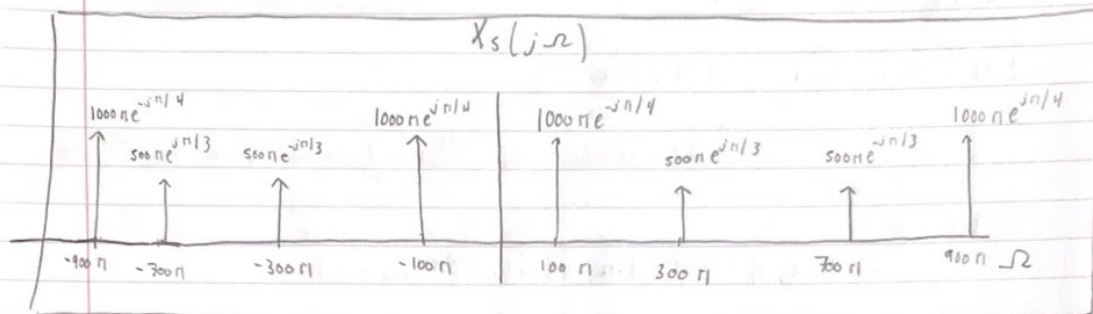 Xs(jΩ)
1000πe^-jπ/4 500πe^jπ/3 500πe^-jπ/3 1000πe^jπ/4 1000πe^-jπ/4 500πe^jπ/3 500πe^-jπ/3 1000πe^jπ/4
-900π -700π -300π -100π 100π 300π 700π 900π Ω